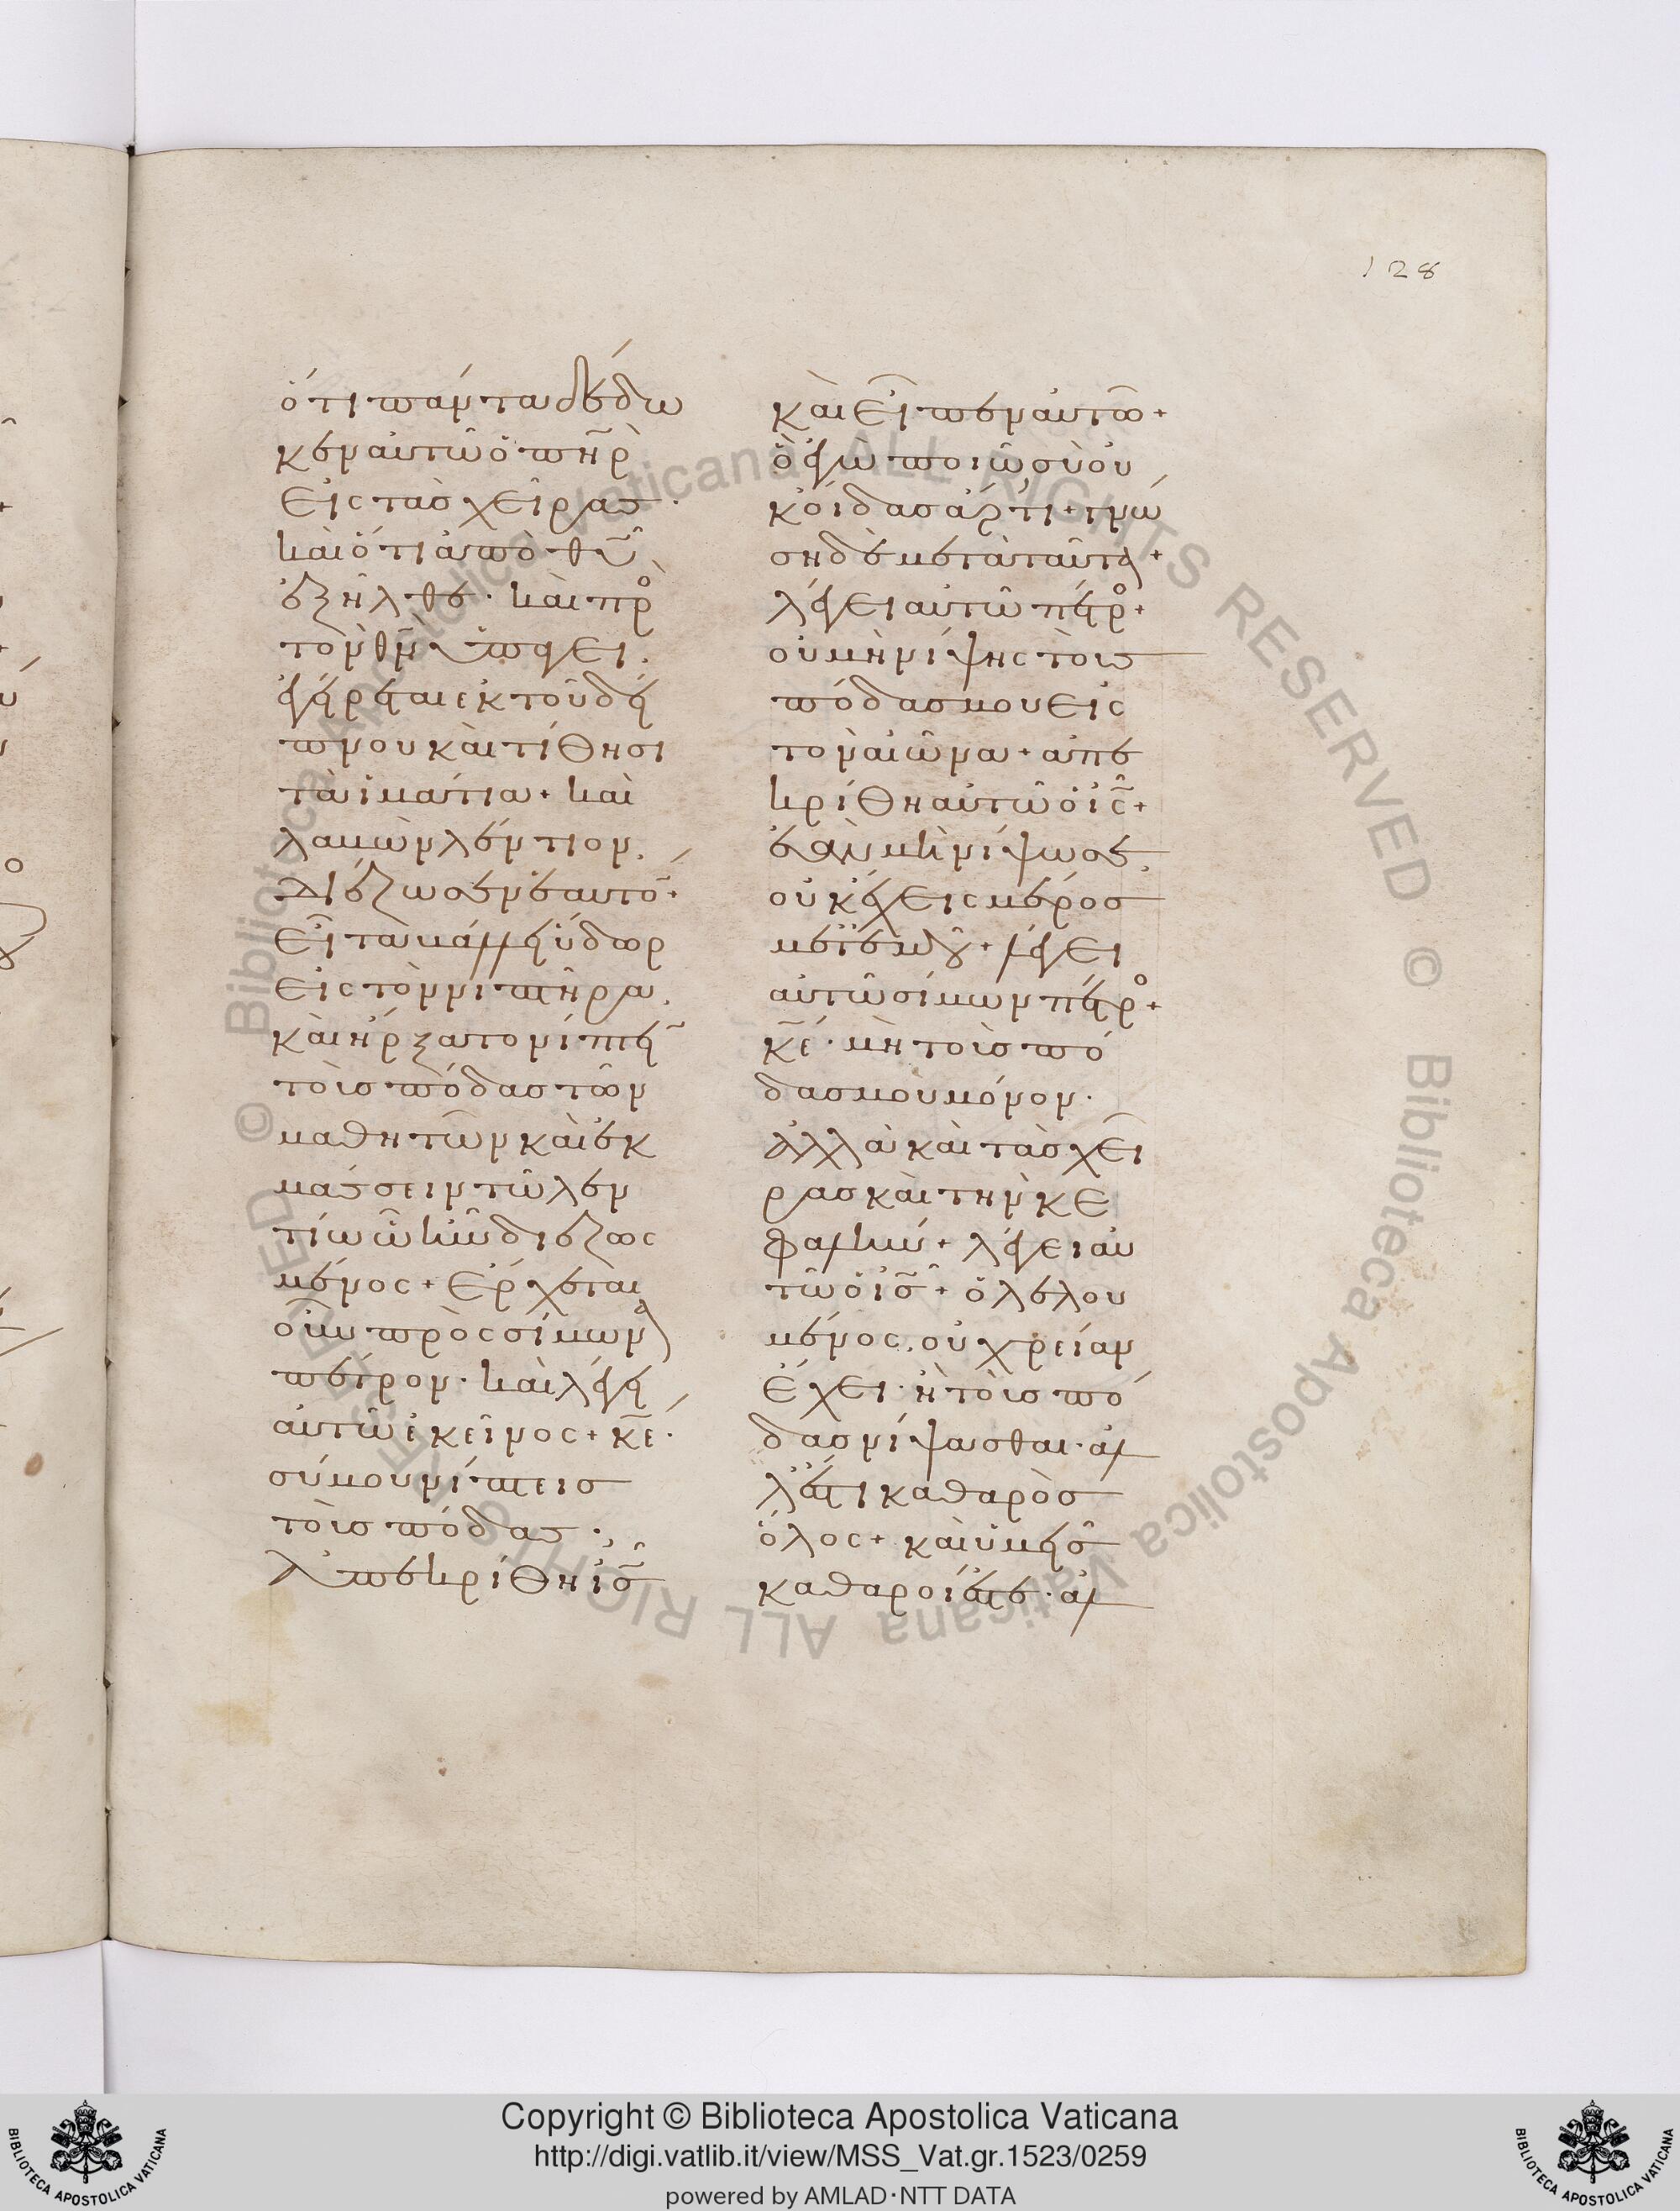 128
ὅτι πάντα δέδω
κεν αὐτῶ ὁ πη̄ρ
εἰς τὰσ χεῖρασ·
καὶ ὅτι ἀπὸ θῡ
ἐξῆλθε· καὶ πρ
τὸν θν̄ ὑπάγει.
ἐγείρεται ἐκ τοῦ δεί
πνου καὶ τίθησι
τὰ ἱμάτια + καὶ
λαβὼν λέντιον.
διέζωσεν ἑαυτό +
εἶτα βάλλει ὕδωρ
εἰς τὸν νιπτῆρα.
καὶ ἤρξατο νίπτει
τοὺσ πόδασ τῶν
μαθητῶν καὶ ἐκ
μάσσειν τῶ λεν
τίω ὧ ἦν διεζωσ
μένος + ἔρχεται
οὖν πρὸς σίμωνα
πέτρον· καὶ λέγει
αὐτῶ ἐκεῖνος + κε̄·
σύ μου νίπτεισ
τοὺσ πόδασ·
Ἀπεκρίθη ισ̄
καὶ εἶπεν αὐτῶ +
ὃ ἐγὼ ποιῶ σὺ οὐ
κ οἶδασ ἄρτι + γνώ
ση δὲ μετὰ ταῦτα +
λέγει αὐτῶ πέτρο +
οὐ μὴ νίψησ τοὺσ
πόδασ μου εἰς
τὸν αἰῶνα + ἀπε
κρίθη αὐτῶ ὁ ις̄ +
ἐὰν μὴ νίψω σε.
οὐκ ἔχεις μέροσ
μετ ἐμοῦ + λέγει
αὐτῶ σίμων πέτρο +
κε̄· μὴ τοὺσ πό
δασ μου μόνον·
ἀλλὰ καὶ τὰσ χεῖ
ρασ καὶ τὴν κε
φαλήν + λέγει αὐ
τῶ ὁ ισ̄ + ὁ λελου
μένος. οὐ χρείαν
ἔχει· ἢ τοὺσ πό
δασ νίψασθαι· ἀλ
λ ἔστι καθαρὸσ
ὅλος + καὶ ὑμεῖσ
καθαροί ἐστε· ἀλ
Copyright © Biblioteca Apostolica Vaticana
http://digi.vatlib.it/view/MSS_Vat.gr.1523/0259
powered by AMLAD·NTT DATA